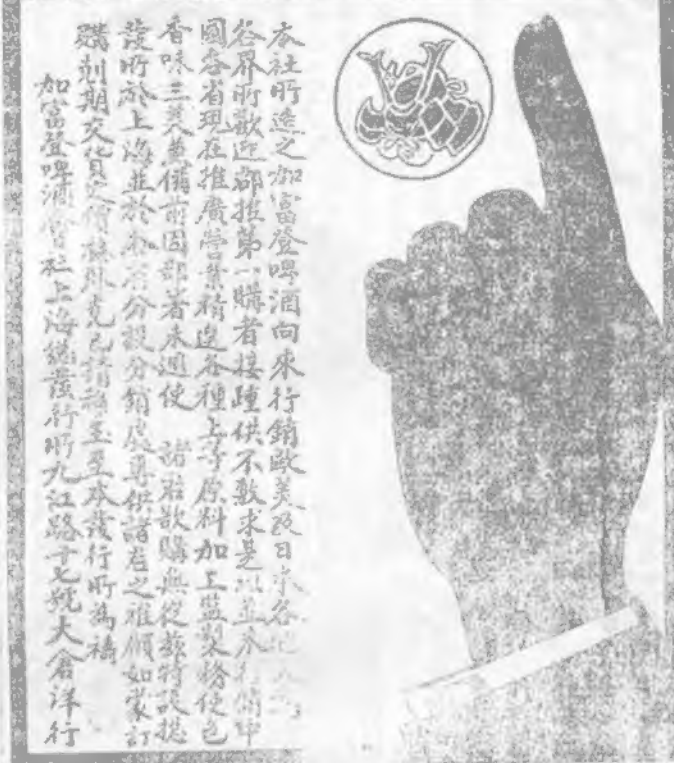 本社所造之加富登啤酒向來行銷歐美及日本各地
各界所歡迎都推第一購者接踵供不敷求是以並未行銷中
國各省現在推廣營業精選各種上等原料加工監製務使色
香味三美兼備前因部署未週使 諸君欲購無從茲特設總
發所於上海並於各省分設分銷處專供諸君之雅顧如蒙訂
購刻期交貨定價格外克己請移玉至本發行所為禱
加富登啤酒會社上海總發行所九江路十七號大倉洋行